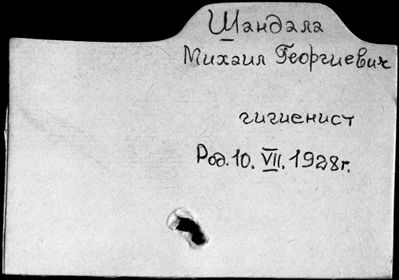 Шандала
Михаил Георгиевич
гигиенист
Род. 10. VII. 1928г.